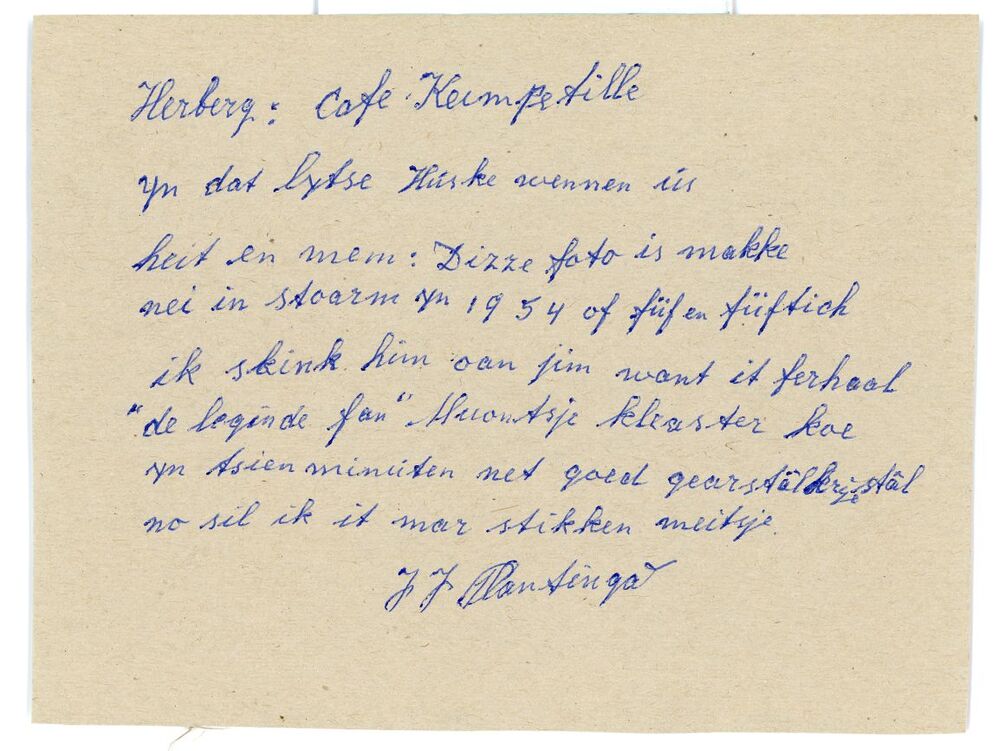 Herberg: Cafe Keimpetille
yn dat lytse Húske wennen ús
heit en mem: Dizze foto is makke
nei in stoarm yn 1954 of fiif en füftich
ik skink him oan jim want it ferhaal
"de leginde fan" Muontsje kleaster koe
yn tsien minuten net goed gearstâl
no sil ik it mar stikken meitsje.
J J Plantinga